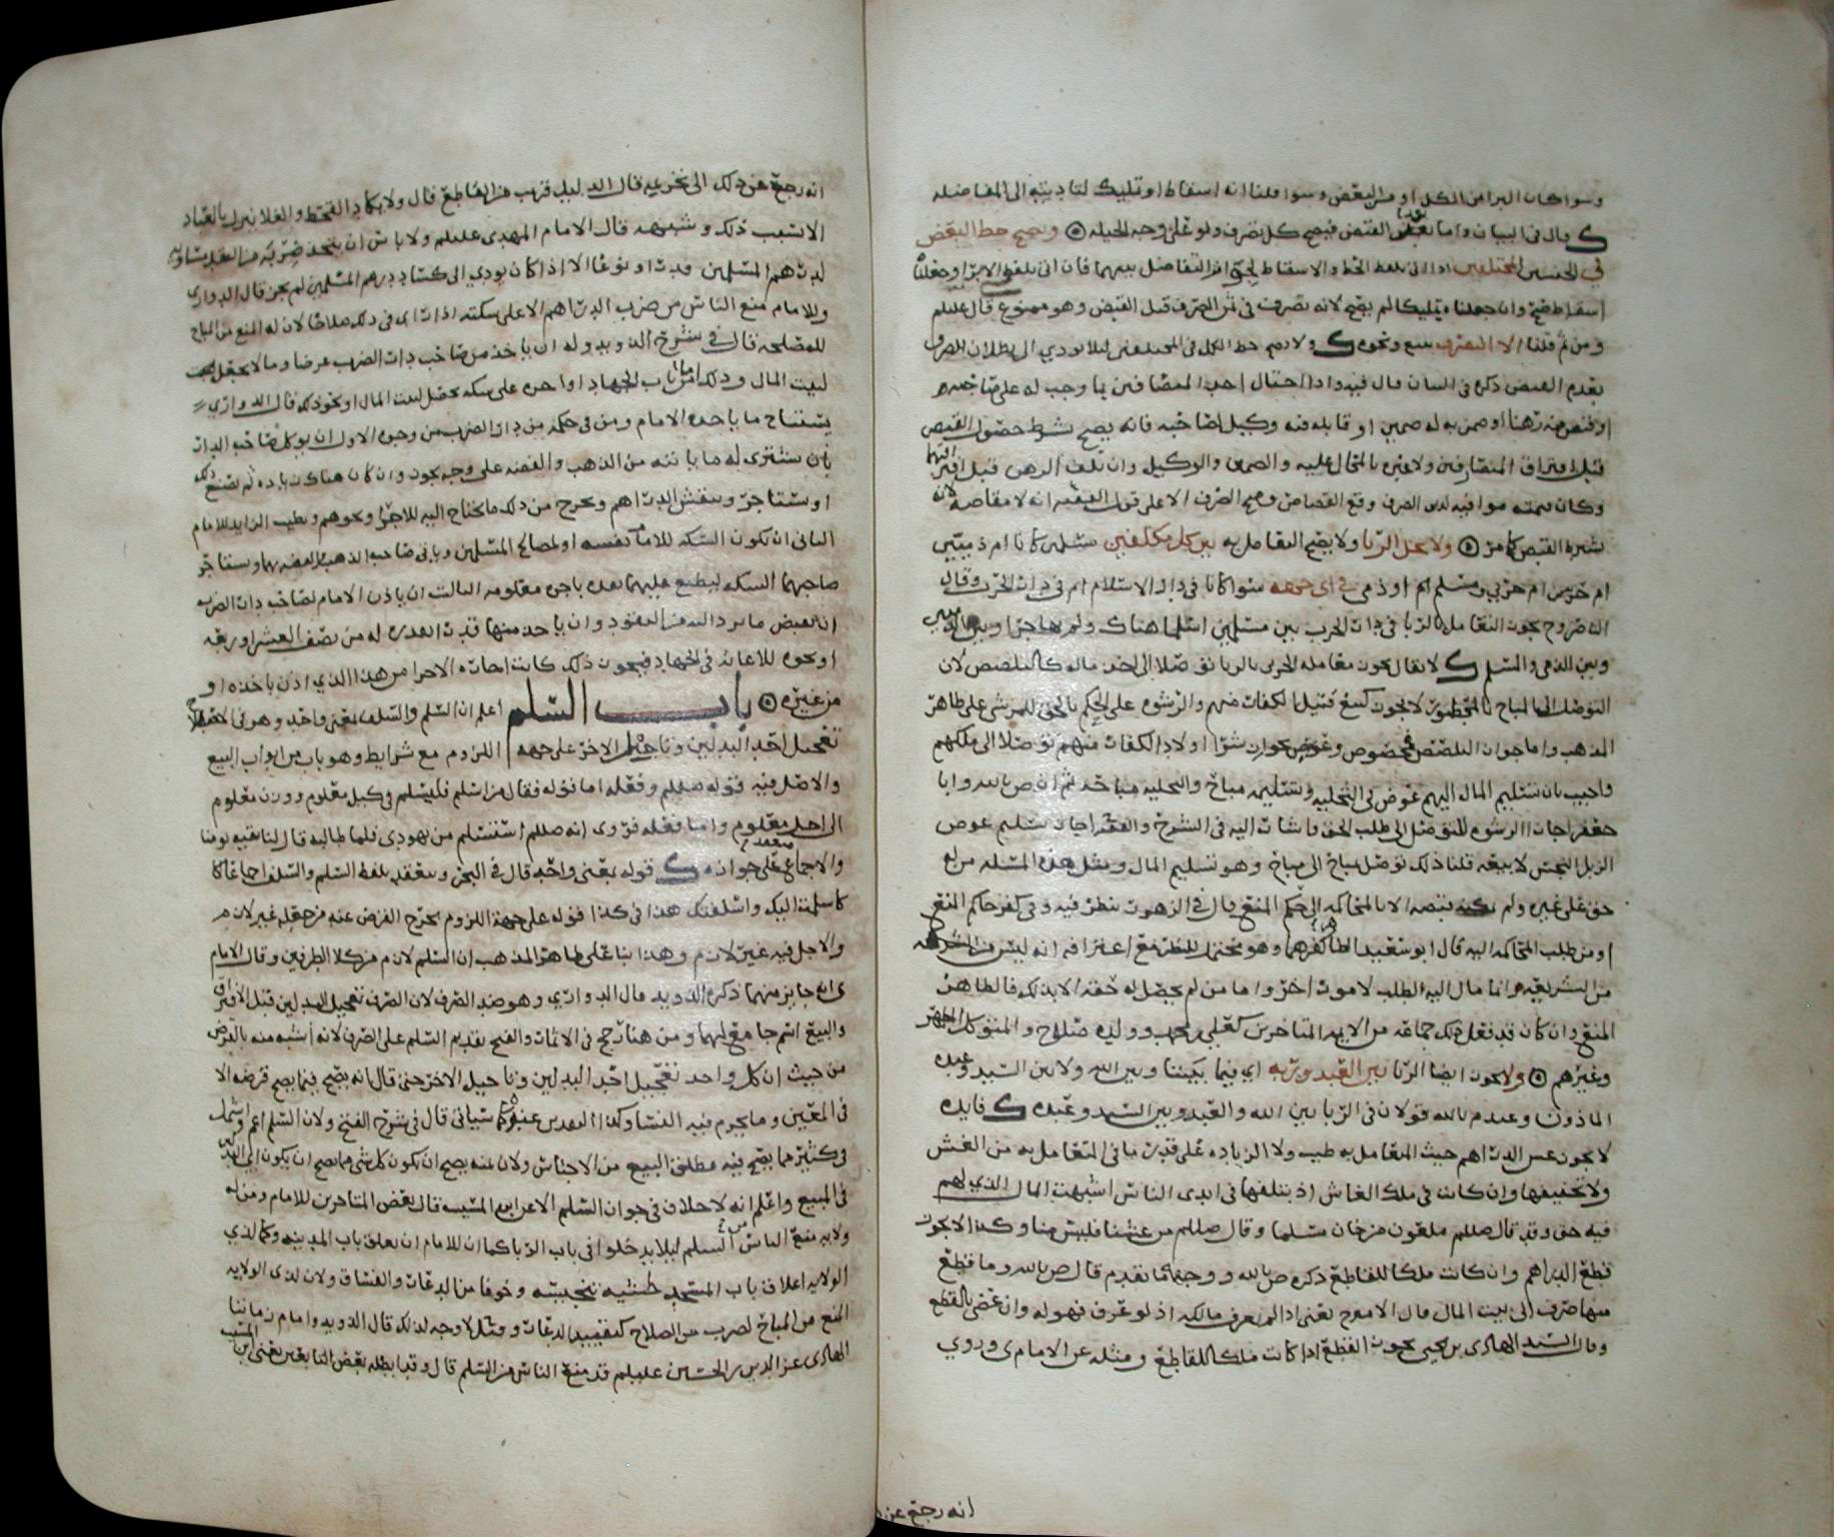 وسوا كان البرا من الكل او من البعض وسوا قلنا انه اسقاط او تمليك لتاديته الى المفاضله
ك قال في البيان واما بعد القبض فيصح كل تصرف ولو على وجه الحيله ويصح حط البعض
في الجنسين المختلفين اذا اتى بلفظ الحط والاسقاط لجواز التفاضل بينهما فان اتى بلفظ الابرا وجعلناه
اسقاط صح وان جعلناه تمليكا لم يصح لانه تصرف في ثمن الصرف قبل القبض وهو ممنوع قال عليلم
ومن ثم قلنا الا التصرف ببيع ونحوه ك ولا يصح حط الكل في المختلفين ليلا يودي الى بطلان الصرف
بعدم القبض ذكره في البيان قال فيه واذا احتال احد المتصارفين بما وجب له على صاحبه
او قبض منه رهنا او ضمن به له ضمين او قابله فيه وكيل لصاحبه فانه يصح بشرط حصول القبض
قبل افتراق المتصارفين ولا عبره بالمحال عليه والضمين والوكيل وان تلف الرهن قبل افتراقهما
وكان قيمته موافيه لدين الصرف وقع القصاص وصح الصرف الا على قول الفقيه انه لا مقاصه لانه
يشبه القبض كما مر ولا يحل الربا ولا يصح التعامل به بين كل مكلفين مسلمين كانا ام ذميين
ام حربيين ام حربي ومسلم ام او ذمي في اي جهه سوا كانا في دار الاسلام ام في دار الحرب وقال
الناصر وح يجوز التعامل بالربا في دار الحرب بين مسلمين اسلما هناك ولم يهاجرا وبين الذميين
وبين الذمي والمسلم ك لا يقال يجوز معامله الحربي بالربا توصلا الى اخذ ماله كالتلصص لان
التوصل الى المباح بالمحظور لا يجوز كبيع قتيل الكفار منهم والرشوه على الحكم بالحق للمرتشي على ظاهر
المذهب واما جواز التلصص فمخصوص وعورض بجواز شرا اولاد الكفار منهم توصلا الى ملكهم
واجيب بان تسليم المال اليهم عوض في التخليه وتسليمه مباح والتخليه مباحه ثم ان ص بالله وابا
جعفر اجازا الرشوه للتوصل الى طلب الحق واشار اليه في الشرح والفقه اجاز تسليم عوض
الزبل النجس لا بيعه قلنا ذلك توصل بمباح الى مباح وهو تسليم المال ومثل هذه المسله من له
حق على غيره ولم يمكنه قبضه الا بالمحاكمه الى حكم المنع قال في الزهور ينظر فيه وفي كفر حاكم المنع
او من طلب المحاكمه اليه قال ابو سعيد الظاهر كفرهما وهو محتمل للنظر مع اعترافه انه ليس من الشريعه
من الشريعه وانما مال اليه الطلب لامور اخر واما من لم يحصل له حقه الا بذلك فالظاهر
المنع وان كان قد فعل ذلك جماعه من الايمه المتاخرين كعلي بن محمد وولده صلاح والمتوكل المطهر
وغيرهم ولا يجوز ايضا الربا بين العبد وربه اي فيما بيننا وبين الله ولا بين السيد وعبده
الماذون وعند م بالله قولان في الربا بين الله والعبد وبين السيد وعبده ك فايده
لا يجوز غش الدراهم حيث المتعامل به طيب ولا الزياده على قدر ما في المتعامل به من الغش
ولا تخفيفها وان كانت في ملك الغاش اذ بتلفها في ايدي الناس اشبهت المال الذي لهم
فيه حق وقد قال صللم ملعون من خان مسلما وقال صللم من غشنا فليس منا وكذا لا يجوز
قطع الدراهم وان كانت ملكا للقاطع ذكره ص بالله ووجهه ما تقدم قال ص بالله وما قطع
منها صرف الى بيت المال قال الامير ح يعني اذا لم يعرف مالكه اذ لو عرف فهو له وان عصى بالقطع
وقال السيد الهادي بن يحيى يجوز القطع اذا كانت ملكا للقاطع ومثله عن الامام ي وروي
انه رجع عن
انه رجع عن ذلك الى تحريمه قال الدليل قريب من القاطع قال ولا يكاد القحط والغلا ينزل بالعباد
الا بسبب ذلك وشبهه قال الامام المهدي عليلم ولا باس ان يتخذ ضربه من النقد مساويه
لدرهم المسلمين قدرا ونوعا الا اذا كان يودي الى كساد درهم المسلمين لم يجز قال الدواري
وللامام منع الناس من ضرب الدراهم الا على سكته اذا راى في ذلك صلاحا لان له المنع من المباح
للمصلحه قال في شرح الدويد وله ان ياخذ من صاحب دار الضرب عرضا ومالا يجعل لبيت
لبيت المال وذلك اما من باب الجهاد او اجره على سكه تجعل لبيت المال او نحو ذلك قال الدواري
يستباح ما ياخذه الامام ومن في حكمه من دار الضرب من وجوه الاول ان يوكل صاحب الدار
بان يشتري له ما ياتيه من الذهب والفضه على وجه يجوز وان كان هناك زياده ثم يصنع ذلك
او يستاجر وينقش الدراهم ويخرج من ذلك ما يحتاج اليه للاجرا ونحوهم ويطيب الزايد للامام
الثاني ان تكون السكه للامام نفسه او لمصالح المسلمين وياتي صاحب الذهب والفضه بهما ويستاجر
صاحبهما السكه ليطبع عليهما نقده باجره معلومه الثالث ان ياذن الامام لصاحب دار الضرب
ان يقبض ما يرد اليه من النقود وان ياخذ منها قدرا يعدره له من نصف العشر او ربعه
او نحوه للاعانه في الجهاد فيجوز ذلك كانت اجاره الاجرا من هذا الذي اذن باخذه او
من غيره باب السلم اعلم ان السلم والسلف بمعنى واحد وهو في الاصطلاح
تعجيل احد البدلين وتاجيل الاخر على جهه اللزوم مع شرايط وهو باب من ابواب البيع
والاصل فيه قوله صللم وفعله اما قوله فقال من اسلم فليسلم في كيل معلوم ووزن معلوم
الى اجل معلوم واما فعله فروى انه صللم استسلم من يهودي فلما طالبه قال لنا بقيه يومنا
والاجماع منعقد على جوازه ك قوله بمعنى واحد قال في البحر وينعقد بلفظ السلم والسلف اجماعا كا
كاسلمت اليك واسلفتك هذا في كذا قوله على جهة اللزوم يخرج القرض عنه من جعله غير لازم
والاجل فيه غير لازم وهذا بنا على ظاهر المذهب ان السلم لازم من كلا الطرفين وقال الامام
ي انه جايز منهما ذكره الدويد قال الدواري وهو ضد الصرف لان الصرف تعجيل البدلين قبل الافتراق
والبيع اسم جامع لهما ومن هنا رجح في الاثمار والفتح تقديم السلم على الصرف لانه اشبه منه بالقرض
من حيث ان كل واحد تعجيل احد البدلين وتاجيله الاخر حتى قال انه يصح فيما يصح قرضه الا
في المعين وما يحرم فيه النسا وكذا النقدين عنده كما سياتي قال في شرح الفتح ولان السلم اعم واشمل
في كثير مما يصح فيه مطلق البيع من الاجناس ولان ثمنه يصح ان يكون كل شي مما يصح ان يكون
في المبيع واعلم انه لا خلاف في جواز السلم الا عن ابن المسيب قال بعض المتاخرين للامام ومن له
ولايه منع الناس من السلم ليلا يدخلوا في باب الربا كما ان للامام ان يغلق باب المدينه وكما لذي
الولايه اغلاق باب المسجد خشية تنجيسه وخوفا من الدعار والفساق ولان لذي الولايه
المنع من المباح لضرب من الصلاح كتقييد الدعار ومثله لا وجه لذلك قال الدويد وامام زماننا
الهادي عز الدين بن الحسين عليلم قد منع الناس من السلم قال وقد ابطله بعض التابعين يعني ابن المسيب